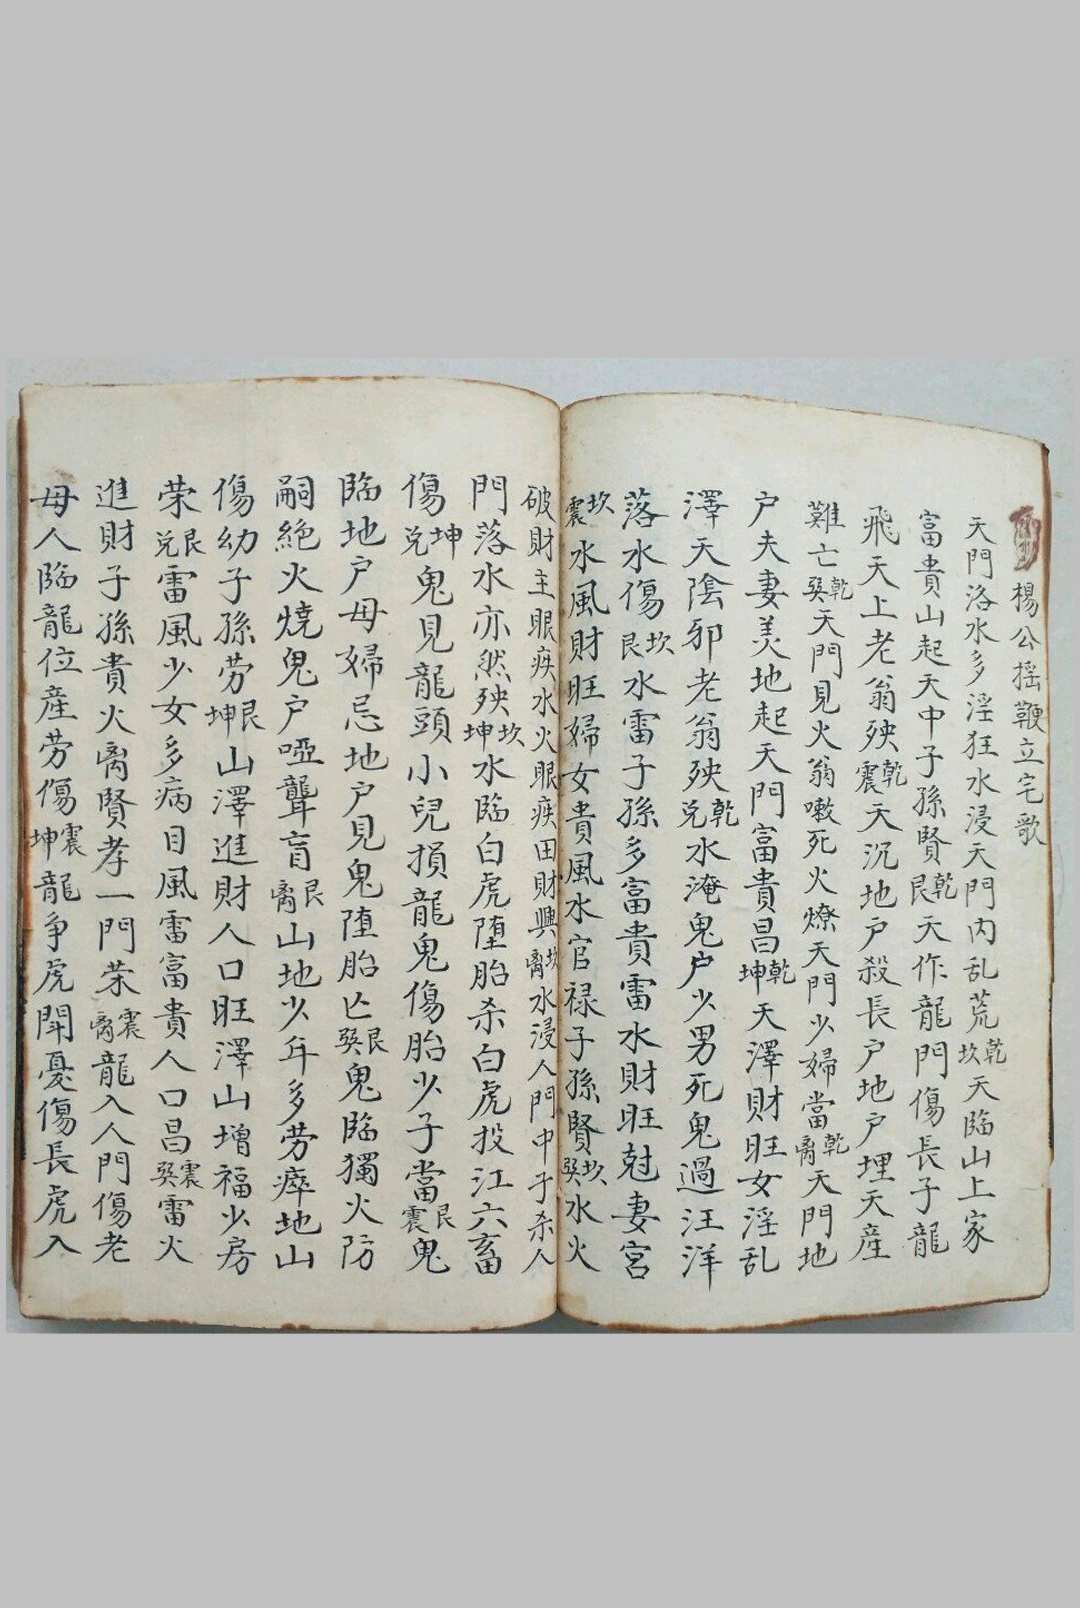 楊公摇鞭立宅歌
天門洛水多淫狂水浸天門内乱荒乾坎天臨山上家
富貴山起天中子孫賢乾艮天作龍門傷長子龍
飛天上老翁殃乾震天沉地户殺長户地户埋天産
難亡乾巽天門見火翁嗽死火燎天門少婦當乾离天門地
户夫妻美地起天門富貴昌乾坤天澤財旺女淫乱
澤天陰邪老翁殃乾兑水淹鬼户少男死鬼過汪洋
落水傷坎艮水雷子孫多富貴雷水財旺尅妻宮
坎震水風財旺婦女貴風水官禄子孫賢坎巽水火
破財主眼疾水火眼疾田財興坎离水浸人門中子杀人
門落水亦然殃坎坤水臨白虎堕胎杀白虎投江六畜
傷坤兑鬼見龍頭小兒損龍鬼傷胎少子當艮震鬼
臨地户母婦忌地户見鬼堕胎亡艮巽鬼臨獨火防
嗣絶火燒鬼户啞聾盲艮离山地少年多劳瘁地山
傷幼子孫劳艮坤山澤進財人口旺澤山增福少房
荣艮兑雷風少女多病目風雷富貴人口昌震巽雷火
進財子孫貴火离賢孝一門荣震离龍入人門傷老
母人臨龍位産劳傷震坤龍争虎鬧憂傷長虎入